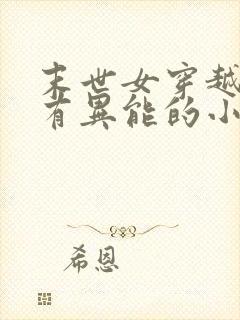 末世女穿越
有異能的小
希恩